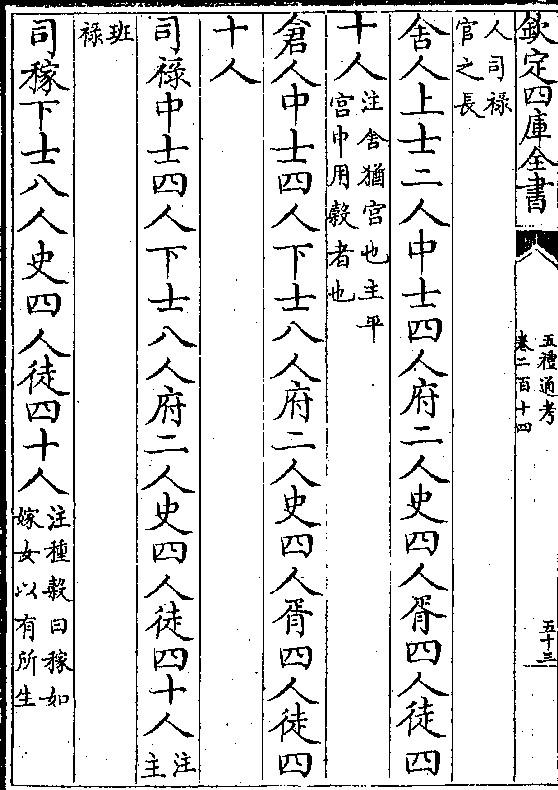 欽定四庫全書
五禮通考
卷二百十四
五十三
人司祿
官之長
舍人上士二人中士四人府二人史四人胥四人徒四
十人
注舍猶宫也主平
宫中用穀者也
倉人中士四人下士八人府二人史四人胥四人徒四
十人
司祿中士四人下士八人府二人史四人徒四十人
注
主
班
祿
司稼下士八人史四人徒四十人
注種穀曰稼如
嫁女以有所生